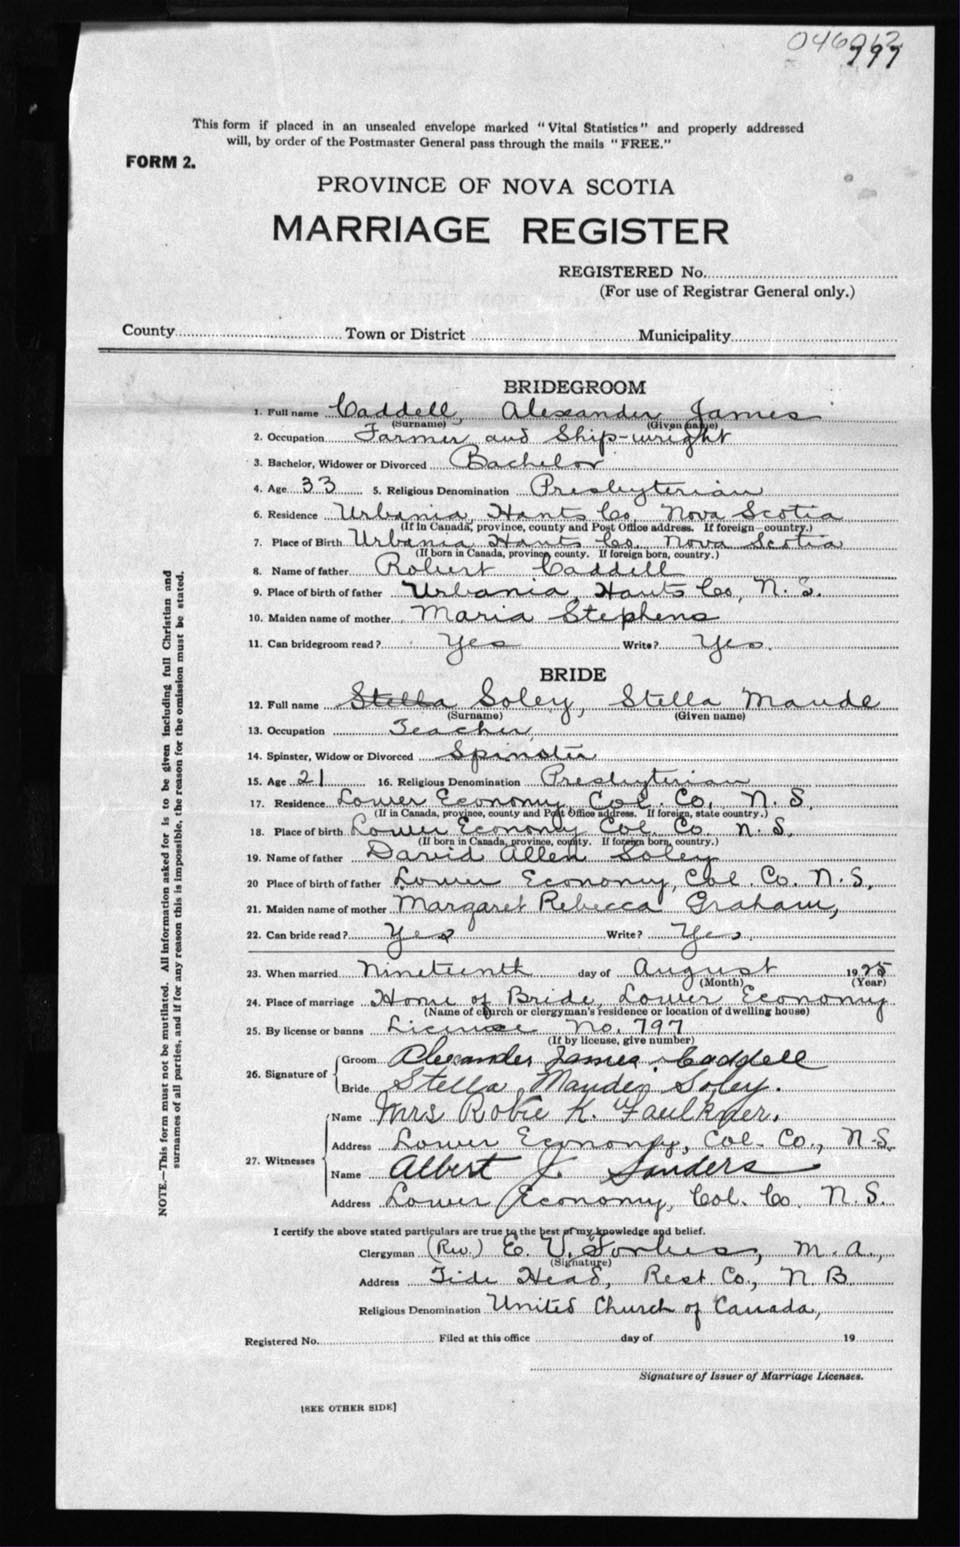 046012
797
This form if placed in an unsealed envelope marked "Vital Statistics" and properly addressed
will, by order of the Postmaster General pass through the mails "FREE."
FORM 2.
PROVINCE OF NOVA SCOTIA
MARRIAGE REGISTER
REGISTERED No.
(For use of Registrar General only.)
County Town or District Municipality
BRIDEGROOM
1. Full name Caddell, Alexander James
(Surname) (Given name)
2. Occupation Farmer and Ship-wright
3. Bachelor, Widower or Divorced Bachelor
4. Age 33 5. Religious Denomination Presbyterian
6. Residence Urbania, Hants Co, Nova Scotia
(If in Canada, province, county and Post Office address. If foreign—country.)
7. Place of Birth Urbania Hants Co. Nova Scotia
(If born in Canada, province, county. If foreign born, country.)
8. Name of father Robert Caddell
9. Place of birth of father Urbania, Hants Co, N.S.
10. Maiden name of mother Maria Stephens
11. Can bridegroom read? Yes Write? Yes.
BRIDE
12. Full name Stella Soley, Stella Maude
(Surname) (Given name)
13. Occupation Teacher,
14. Spinster, Widow or Divorced Spinster
15. Age 21 16. Religious Denomination Presbyterian
17. Residence Lower Economy, Col. Co. N.S.
(If in Canada, province, county and Post Office address. If foreign, state country.)
18. Place of birth Lower Economy Col. Co. N.S.
(If born in Canada, province, county. If foreign born, country.)
19. Name of father David Allen Soley
20 Place of birth of father Lower Economy, Col. Co. N.S.
21. Maiden name of mother Margaret Rebecca Graham,
22. Can bride read? Yes Write? Yes.
23. When married Nineteenth day of August 1925
(Month) (Year)
24. Place of marriage Home of Bride, Lower Economy
(Name of church or clergyman's residence or location of dwelling house)
25. By license or banns License No. 797
(If by license, give number)
26. Signature of
Groom Alexander James Caddell
Bride Stella Maude Soley.
27. Witnesses
Name Mrs Robie K. Faulkner.
Address Lower Economy, Col. Co., N.S.
Name Albert J. Sanders
Address Lower Economy, Col. Co. N.S.
I certify the above stated particulars are true to the best of my knowledge and belief.
Clergyman (Rev.) E. V. Forbes, M.A.,
(Signature)
Address Tide Head, Rest. Co., N.B.
Religious Denomination United Church of Canada,
Registered No. Filed at this office day of 19
Signature of Issuer of Marriage Licenses.
[SEE OTHER SIDE]
NOTE.—This form must not be mutilated. All information asked for is to be given including full Christian and
surnames of all parties, and if for any reason this is impossible, the reason for the omission must be stated.